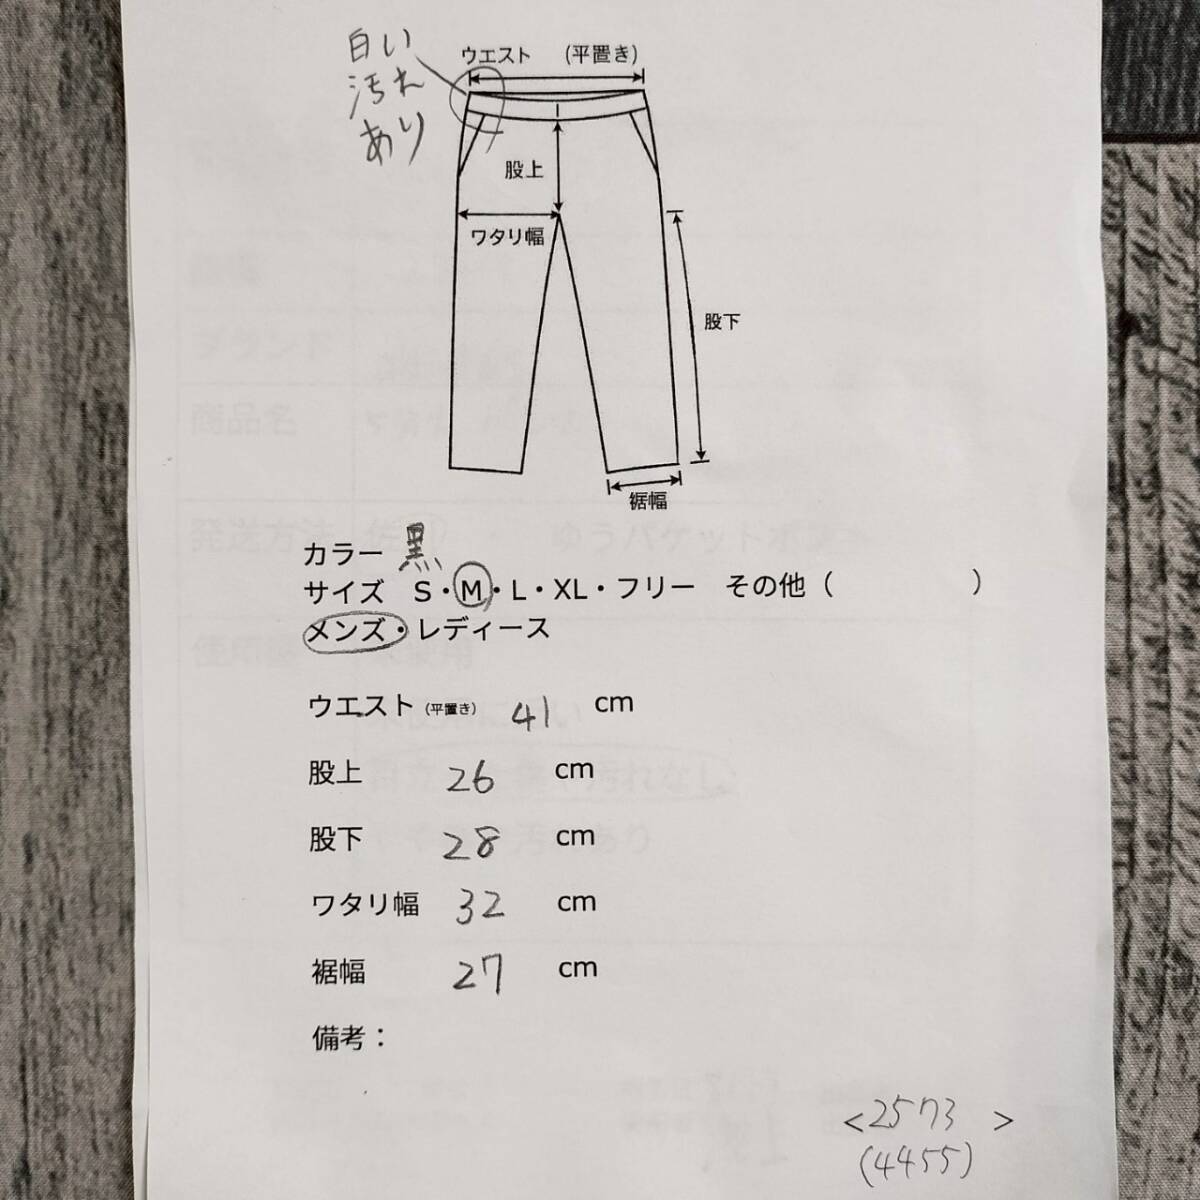 白い
汚れ
あり
ウエスト (平置き)
股上
ワタリ幅
股下
裾幅
カラー 黒
サイズ S・M・L・XL・フリー その他 ( )
メンズ・レディース
ウエスト (平置き) 41 cm
股上 26 cm
股下 28 cm
ワタリ幅 32 cm
裾幅 27 cm
備考：
<2573 >
(4455)
ブランド
商品名
発送方法
ゆうパケットポスト